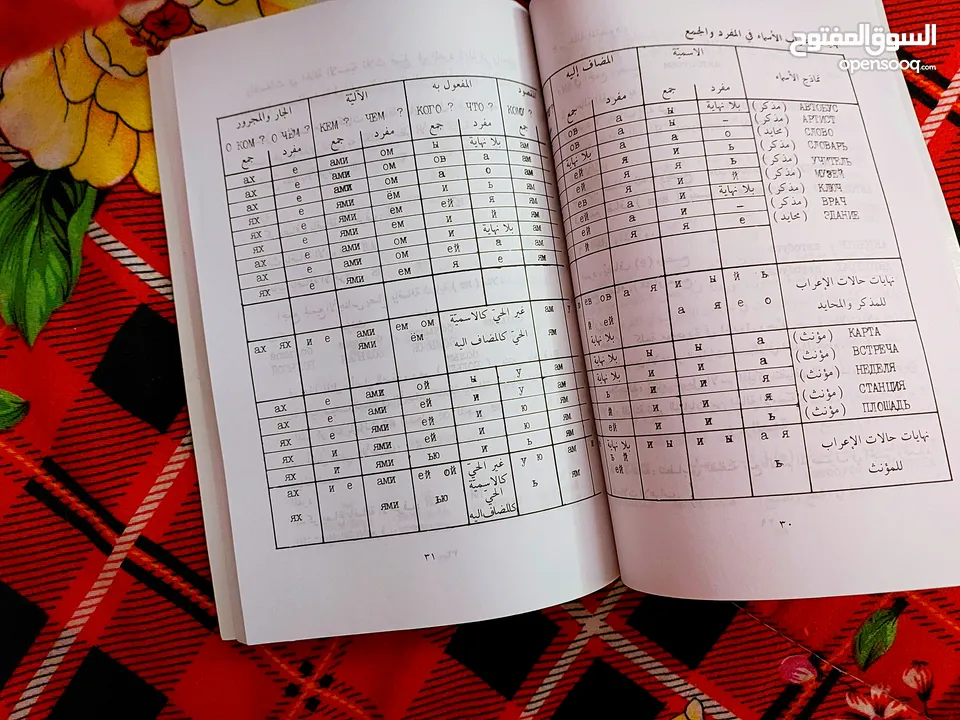 السوق المفتوح
opensooq.com
الأسماء في المفرد والجمع
نماذج الأسماء
الاسمية
المضاف إليه
مفرد جمع مفرد جمع
АВТОБУС (مذكر) بلا نهاية ы а ов
АРТИСТ (مذكر) – ы а ов
СЛОВО (محايد) о а а بلا نهاية
СЛОВАРЬ (مذكر) ь и я ей
УЧИТЕЛЬ (مذكر) ь я я ей
МУЗЕЙ (مذكر) й и я ев
КЛЮЧ (مذكر) بلا نهاية и а ей
ВРАЧ (مذكر) – и а ей
ЗДАНИЕ (محايد) е я я й
نهايات حالات الإعراب
للمذكر والمحايد
КАРТА (مؤنث) а ы ы بلا نهاية
ВСТРЕЧА (مؤنث) а и и بلا نهاية
НЕДЕЛЯ (مؤنث) я и и ь
СТАНЦИЯ (مؤنث) я и и й
ПЛОЩАДЬ (مؤنث) ь и и ей
نهايات حالات الإعراب
للمؤنث
٣٠
المفعول به
الآلية
الجار والمجرور
КОМУ ? ЧТО ? КОГО ? ЧЕМ ? КЕМ ? О ЧЕМ ? О КОМ ?
جمع مفرد جمع مفرد جمع مفرد جمع
ам بلا نهاية ы ом ами е ах
ам а ов ом ами е ах
ам о а ом ами е ах
ям ь и ём ями е ях
ям я ей ем ями е ях
ям й и ем ями е ях
ам بلا نهاية и ом ами е ах
ам а ей ом ами е ах
ям е я ем ями е ях
غير الحيّ كالاسميّة
الحيّ كالمضاف اليه
ем ом
ём
ами
ями
и е
ах ях
ам у ы ой ами е ах
ам у и ей ами е ах
ям ю и ей ями е ях
ям ю и ей ями и ях
ям ь и ью ями и ях
غير الحيّ
كالاسميّة
الحيّ
كالمضاف اليه
у ю
ь
ей ой
ью
ами
ями
и е
ах
ях
٣١